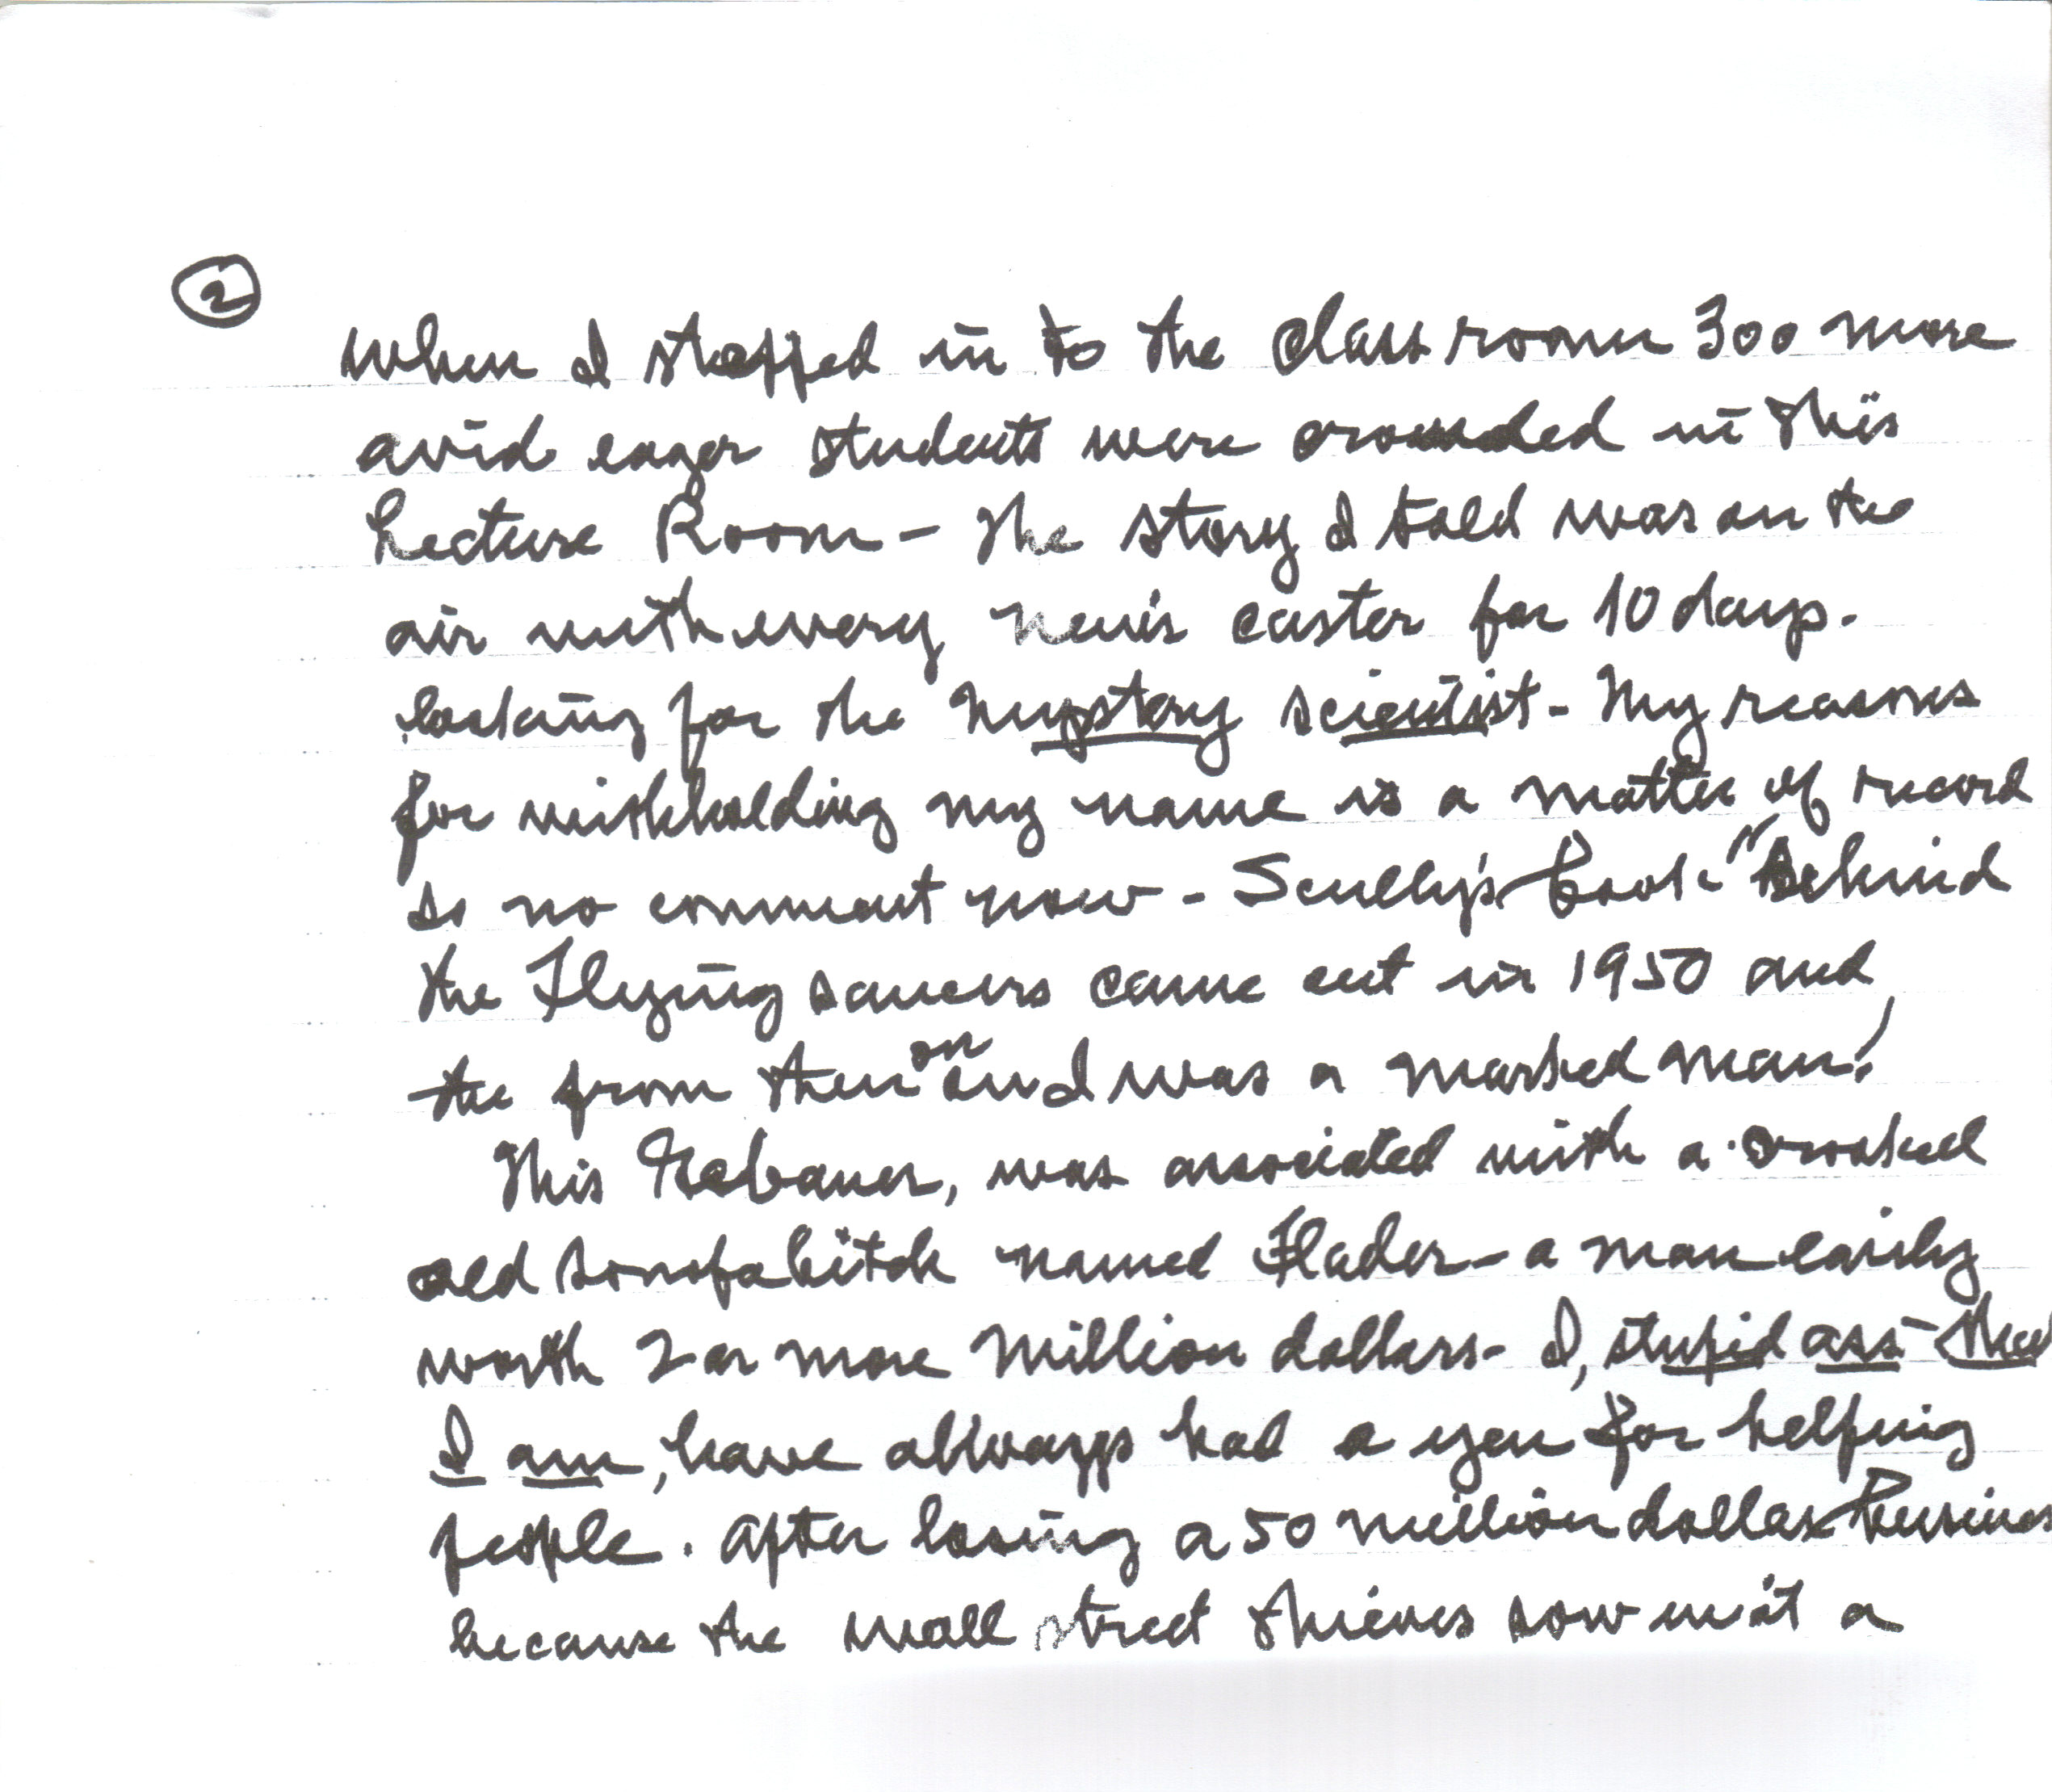 ②
When I stepped in to the Class room 300 more
avid eager students were crowded in this
Lecture Room - The story I told was on the
air with every News caster for 10 days.
looking for the Mystery scientist - My reasons
for withholding my name is a matter of record
so no comment now - Scully's book "Behind
the Flying saucers came out in 1950 and
the from then on and I was a marked man!
This Gebauer, was associated with a crooked
old sonofabitch named Flader - a man easily
worth 2 or more Million dollars - I, stupid ass - that
I am, have allways had a yen for helping
people. After losing a 50 million dollar business
because the wall street thieves sow in it a